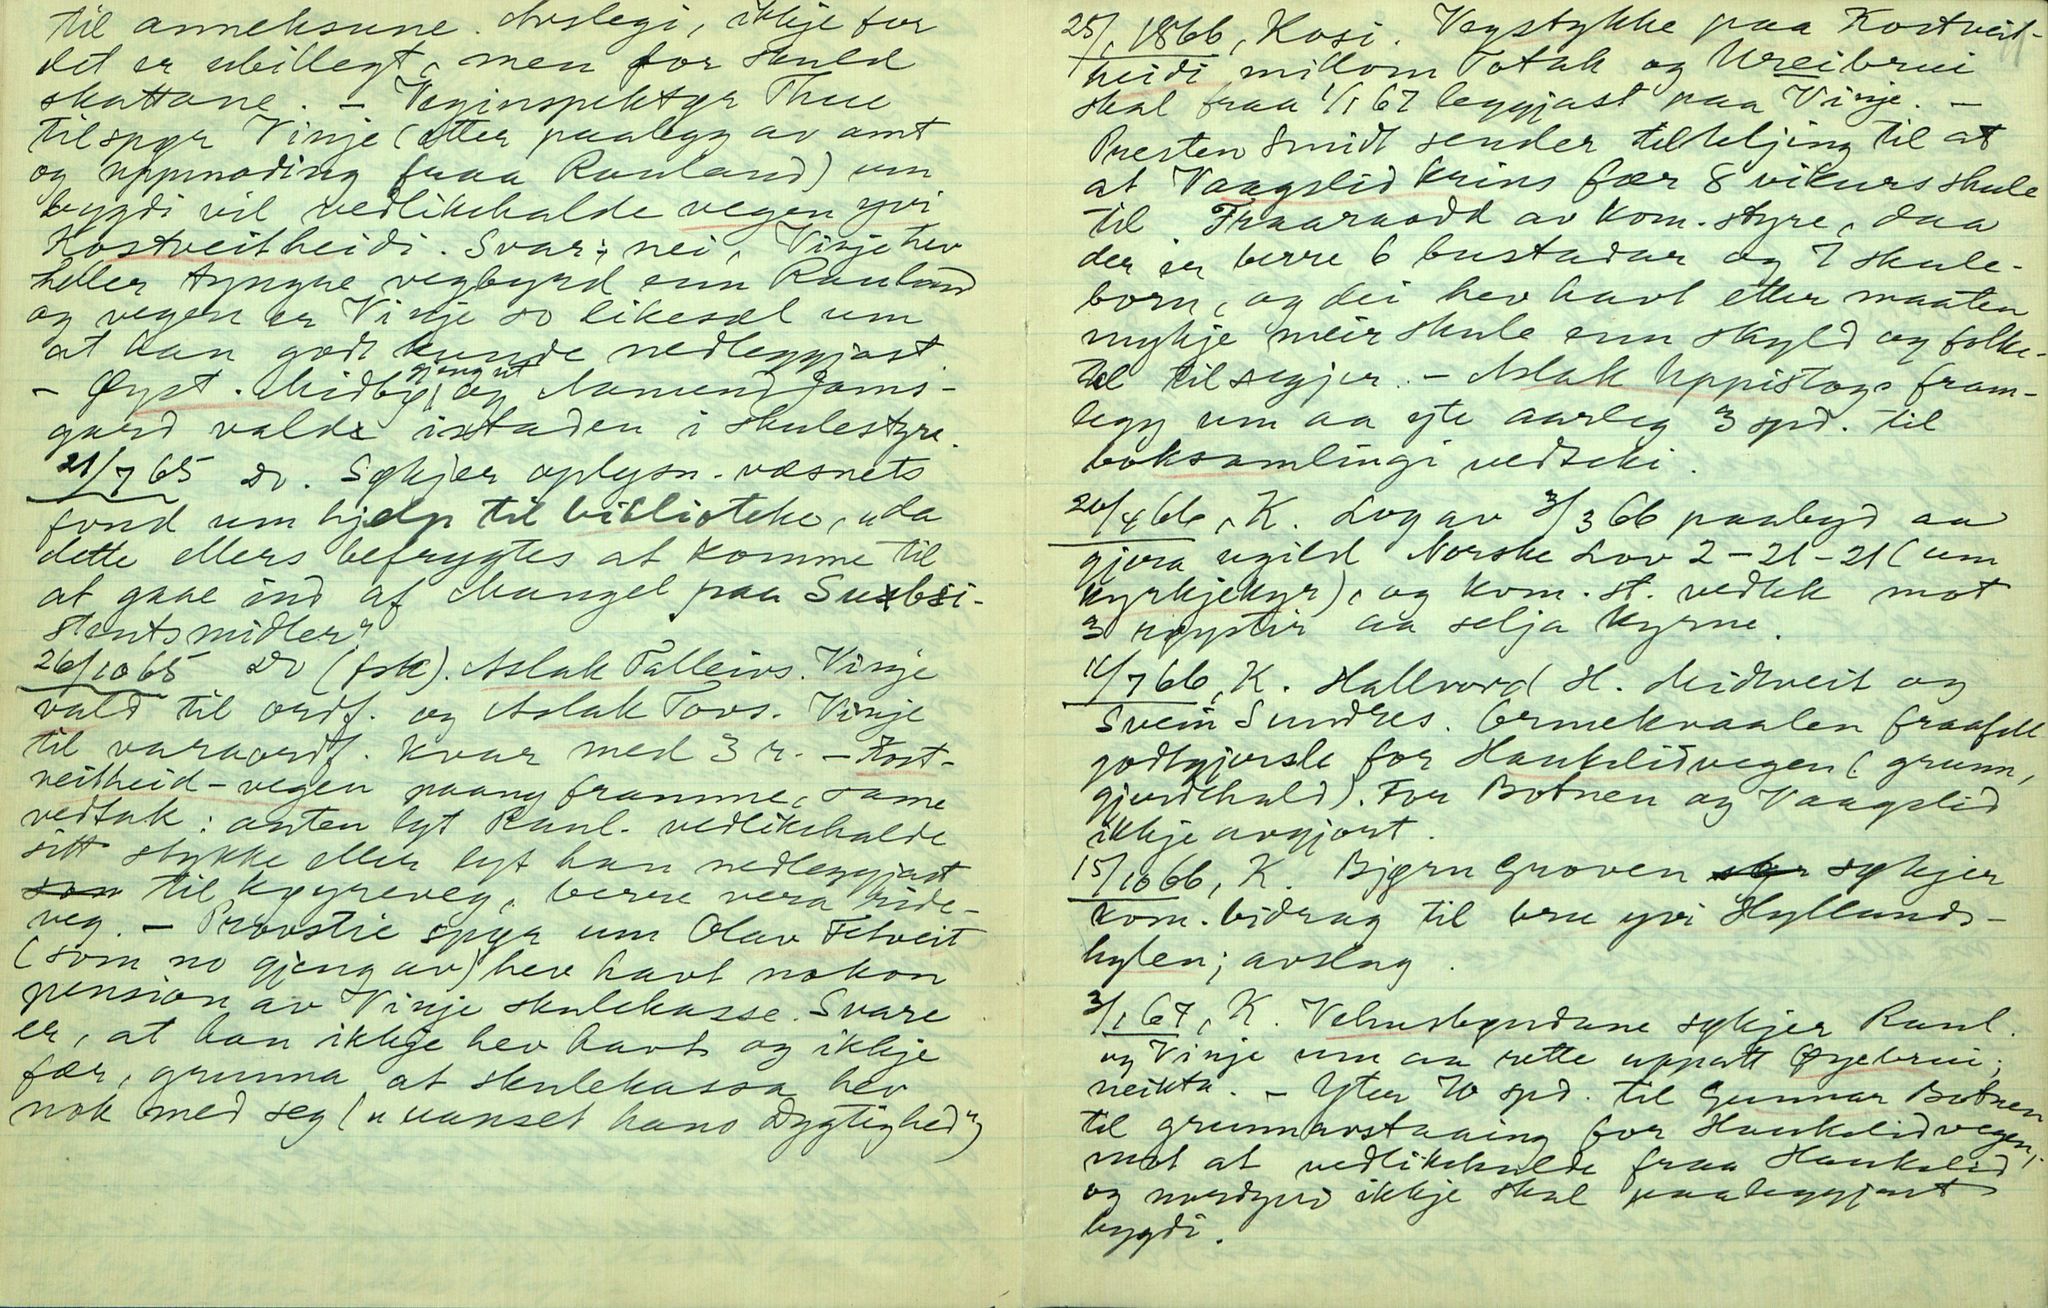 til anneksune. Avslegi, ikkje for
det er ubillegt, men for skuld
skattane. – Veginspektør Thue
tilspør Vinje (etter paalegg av amt
og uppmoding fraa Rauland) um
bygdi vil vedlikehalde vegen yvi
Kostveitheidi. Svar: nei, Vinje hev
heller tyngre vegbyrd enn Rauland
og vegen er Vinje so likesæl um
at han godt kunde nedleggjast.
– Øyst. Midbø gjeng ut og Aamund Jams-
gard valde istaden i skulestyre.
21/7 65 Do. Søkjer oplysn.-væsnets
fond um hjelp til biblioteke, "da
dette ellers befrygtes at komme til
at gaae ind af Mangel paa Subsi-
stentsmidler"
26/10 65 Do (fsk). Aslak Talleivs. Vinje
vald til ordf. og Aslak Tovs. Vinje
til varaordf. kvar med 3 r. – Kost-
veitheid-vegen paany framme, same
vedtak: anten lyt Raul. vedlikehalde
sitt stykke eller lyt han nedleggjast
til køyreveg, berre vera ride-
veg. – Provstie spør um Olav Fetveit
(som no gjeng av) hev havt nokon
pension av Vinje skulekasse. Svare
er, at han ikkje hev havt og ikkje
fær, grunna at skulekassa hev
nok med seg ("uanset hans Dygtighed")
25/1 1866, Kosi. Vegstykke paa Kostveit-
heidi millom Totak og Ureibrui
skal fraa 1/1 67 leggjast paa Vinje. –
Presten Smidt sender tilteljing til at
at Vaagslid krins fær 8 vikurs skule
til Fraaraadd av kom.styre, daa
der er berre 6 bustadar og 7 skule-
born, og dei hev havt etter maaten
mykje meir skule enn skyld og folke-
tal tilsegjer. – Aslak Uppistogs fram-
legg um aa yte aarleg 3 spd. til
boksamlingi vedteki.
26/4 66, K. Log av 3/3 66 paabyd aa
gjera ugild Norske Lov 2-21-21 (um
kyrkjekyr), og kom.st. vedtek mot
3 røystir aa selja kyrne.
11/7 66, K. Hallvord H. Midtveit og
Svein Sundres. Ormekvaalen fraafell
godtgjersle for Haukelidvegen (grunn,
gjerdehald). For Botnen og Vaagslid
ikkje avgjort.
15/10 66, K. Bjørn Groven søkjer
kom.bidrag til bru yvi Hyllands-
hylen; avslag.
3/1 67, K. Vehusbyndane søkjer Raul.
og Vinje um aa rette uppatt Øyebrui;
neikta. – Yter 10 spd. til Gunnar Botnen
til grunnavstaaing for Haukelidvegen,
mot at vedlikehalde fraa Haukelid
og nordyvi ikkje skal paaleggjast
bygdi.